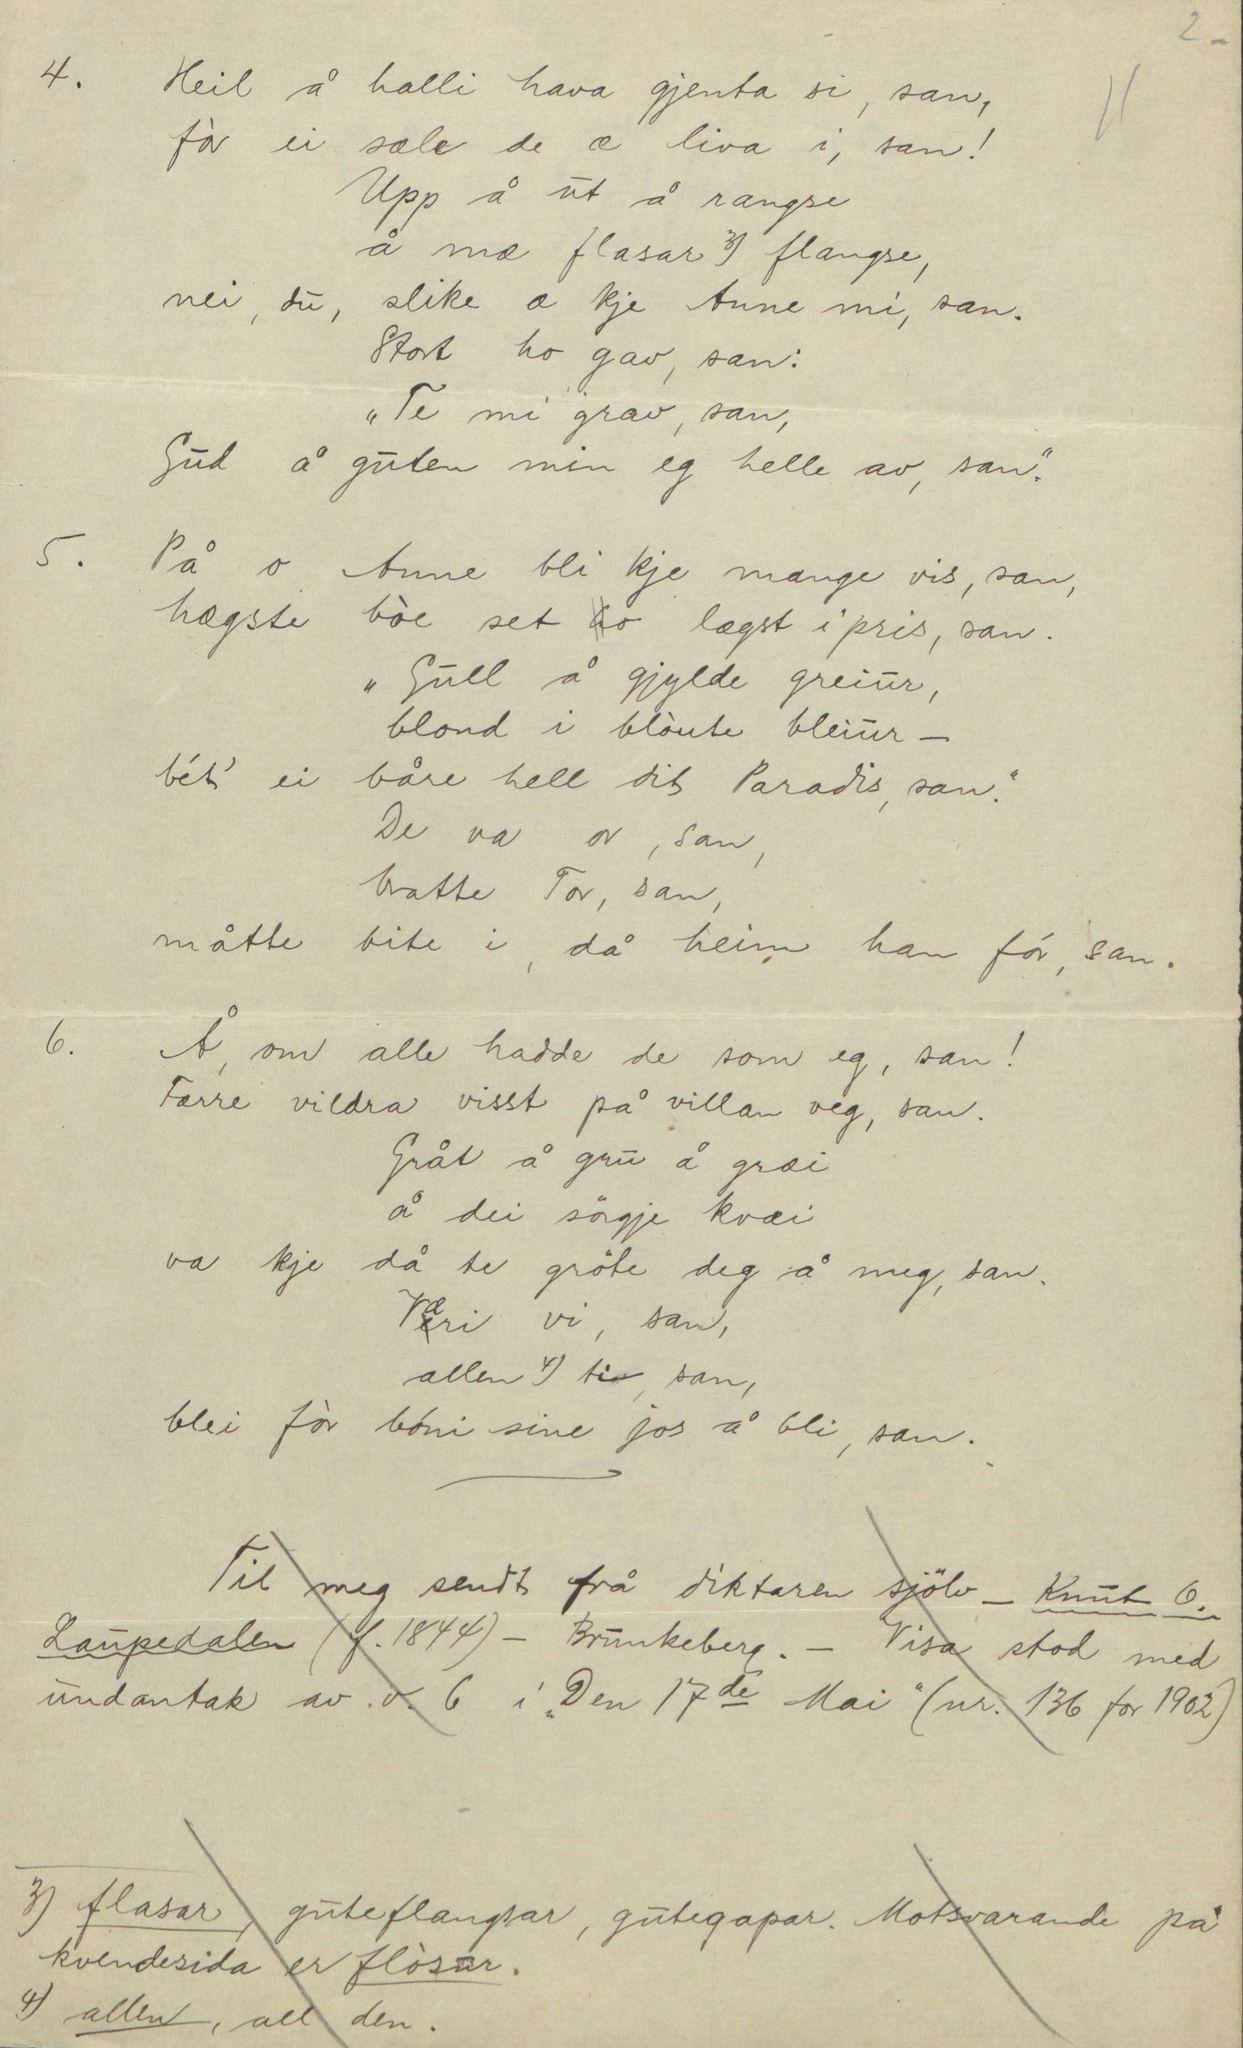 2
4. Heil å halli hava gjenta si, san,
fòr ei sæle de æ liva i, san!
Upp å ut å rangse
å mæ flasar 3) flangse,
nei, du, slike æ kje Anne mi, san.
Stort ho gav, san:
„Te mi grav, san,
Gud å guten min eg helle av, san."
5. På o Anne bli kje mange vis, san,
hægste bòe set ho lægst i pris, san.
„Gull å gjylde greiur,
blond i blòute bleiur —
bét' ei båre hell dit Paradis, san."
De va or, san,
bratte Tor, san,
måtte bite i, då heim han fór, san.
6. Å, om alle hadde de som eg, san!
Færre vildra visst på villan veg, san.
Gråt å gru å græi
å dei sörgje kvæi
va kje då te gröte deg å meg, san.
Væri vi, san,
allen 4) ti, san,
blei fòr bóni sine jos å bli, san.
Til meg sendt frå diktaren sjölv — Knut O.
Laupedalen (f. 1844) — Brunkeberg. — Visa stod med
undantak av v. 6 i „Den 17de Mai" (nr. 136 for 1902)
3) flasar, guteflangsar, gutegapar. Motsvarande på
kvendesida er flòsur.
4) allen, all den.